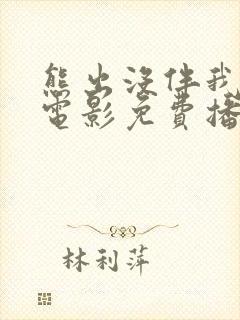 熊出没伴我
电影免费播
林利萍